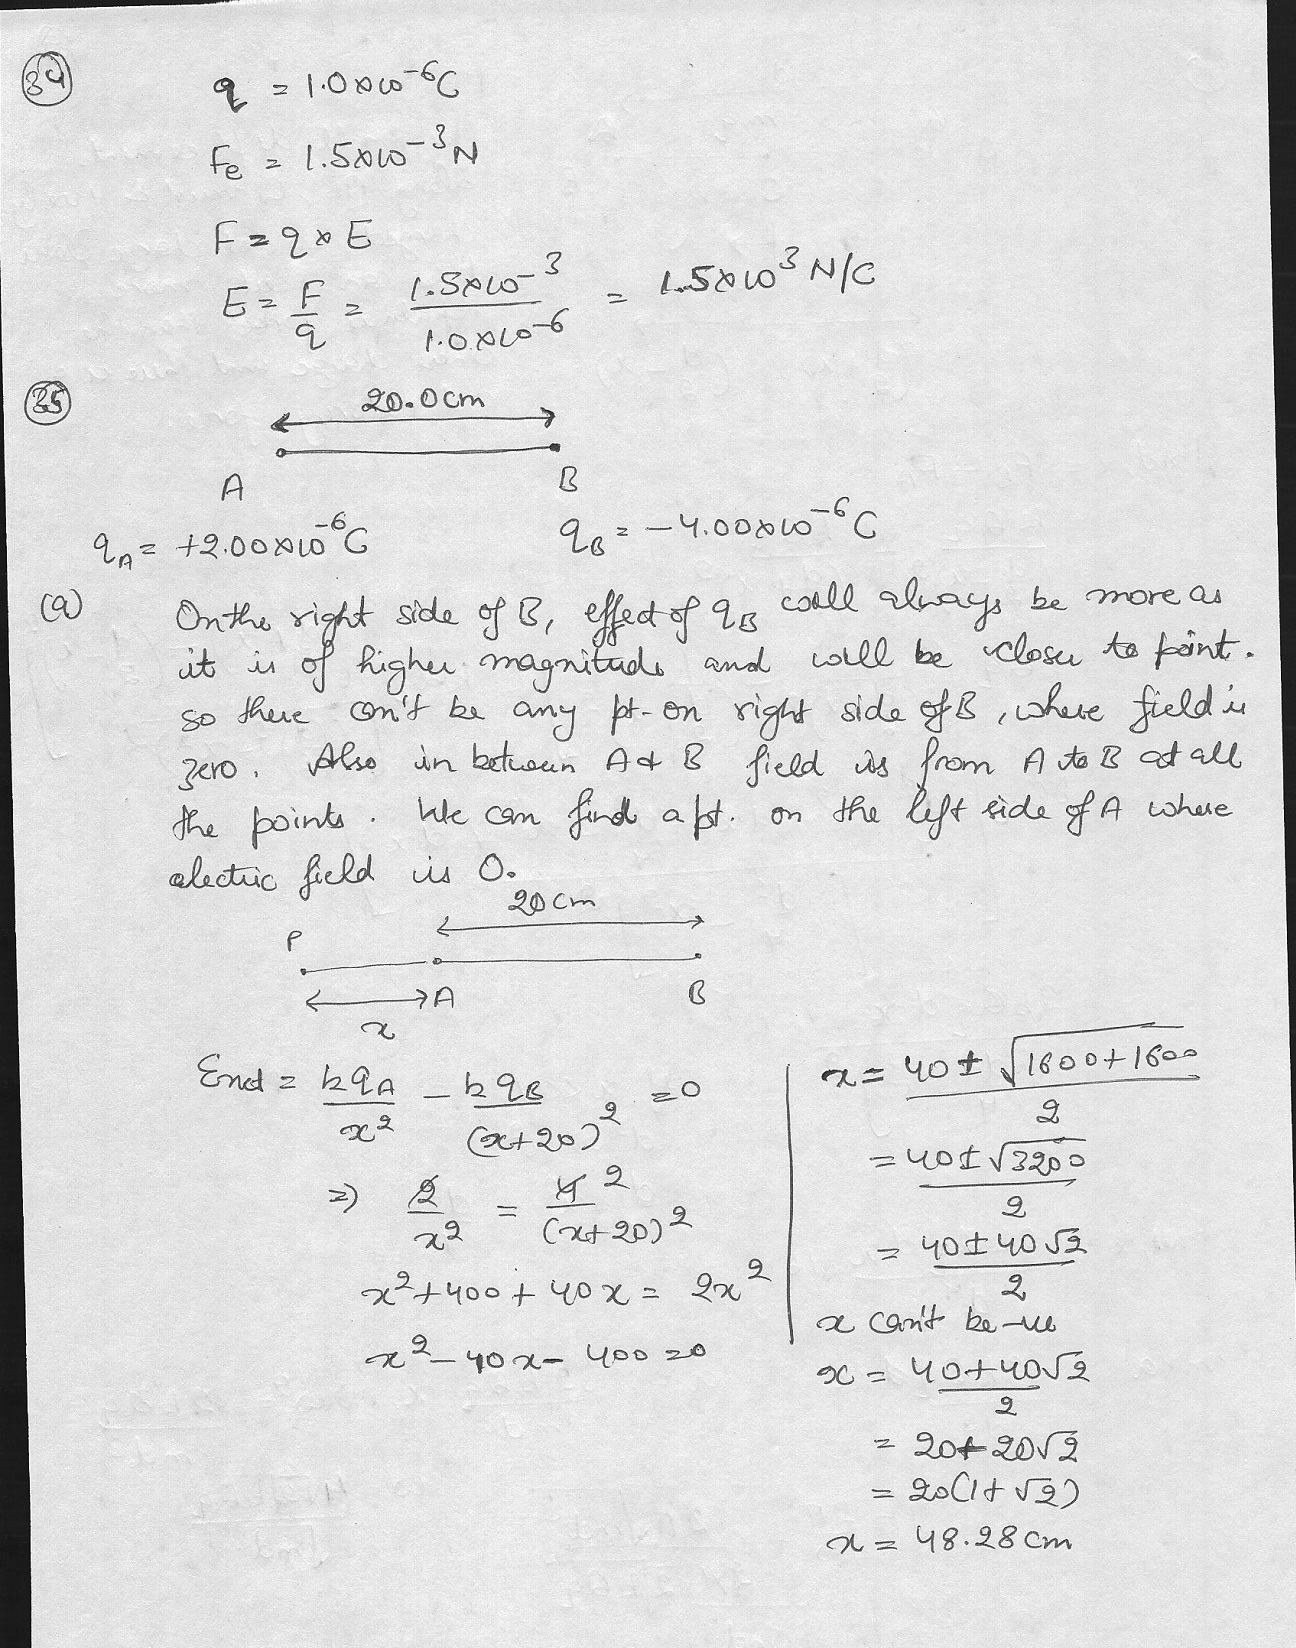 34
q = 1.0×10⁻⁶C
Fe = 1.5×10⁻³N
F = q × E
E = F/q = 1.5×10⁻³/1.0×10⁻⁶ = 1.5×10³ N/C
35
20.0cm
A B
qA = +2.00×10⁻⁶C qB = -4.00×10⁻⁶C
(a) On the right side of B, effect of qB will always be more as
it is of higher magnitude and will be closer to point.
so there can't be any pt. on right side of B, where field is
zero. Also in between A & B field is from A to B at all
the points. We can find a pt. on the left side of A where
electric field is 0.
20cm
P
A B
x
Enet = kqA/x² - kqB/(x+20)² = 0
⇒ 2/x² = 4 2/(x+20)²
x²+400+40x = 2x²
x²-40x-400=0
x = 40 ± √1600+1600/2
= 40±√3200/2
= 40±40√2/2
x can't be -ve
x = 40+40√2/2
= 20+20√2
= 20(1+√2)
x = 48.28cm